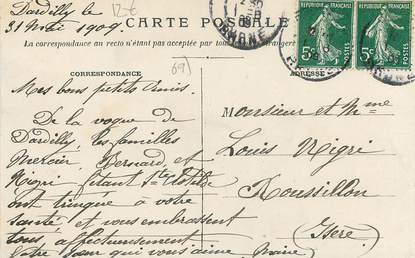 Dardilly le
31 Mai 1909.
12 €
CARTE POSTALE
La correspondance au recto n'étant pas acceptée par tous
étranger
RHONE
REPUBLIQUE FRANÇAISE
5c POSTES
REPUBLIQUE FRANÇAISE
5c POSTES
CORRESPONDANCE
(69)
ADRESSE
Mes bons petits amis.
De la vogue de
Dardilly, les familles
Mercier, Bernard, et
Nigri fêtant Ste Clotilde
ont trinqué à votre
santé et vous embrassent
tous affectueusement.
Votre sœur qui vous aime, Marie
Monsieur et Mme
Louis Nigri
Roussillon
Isère